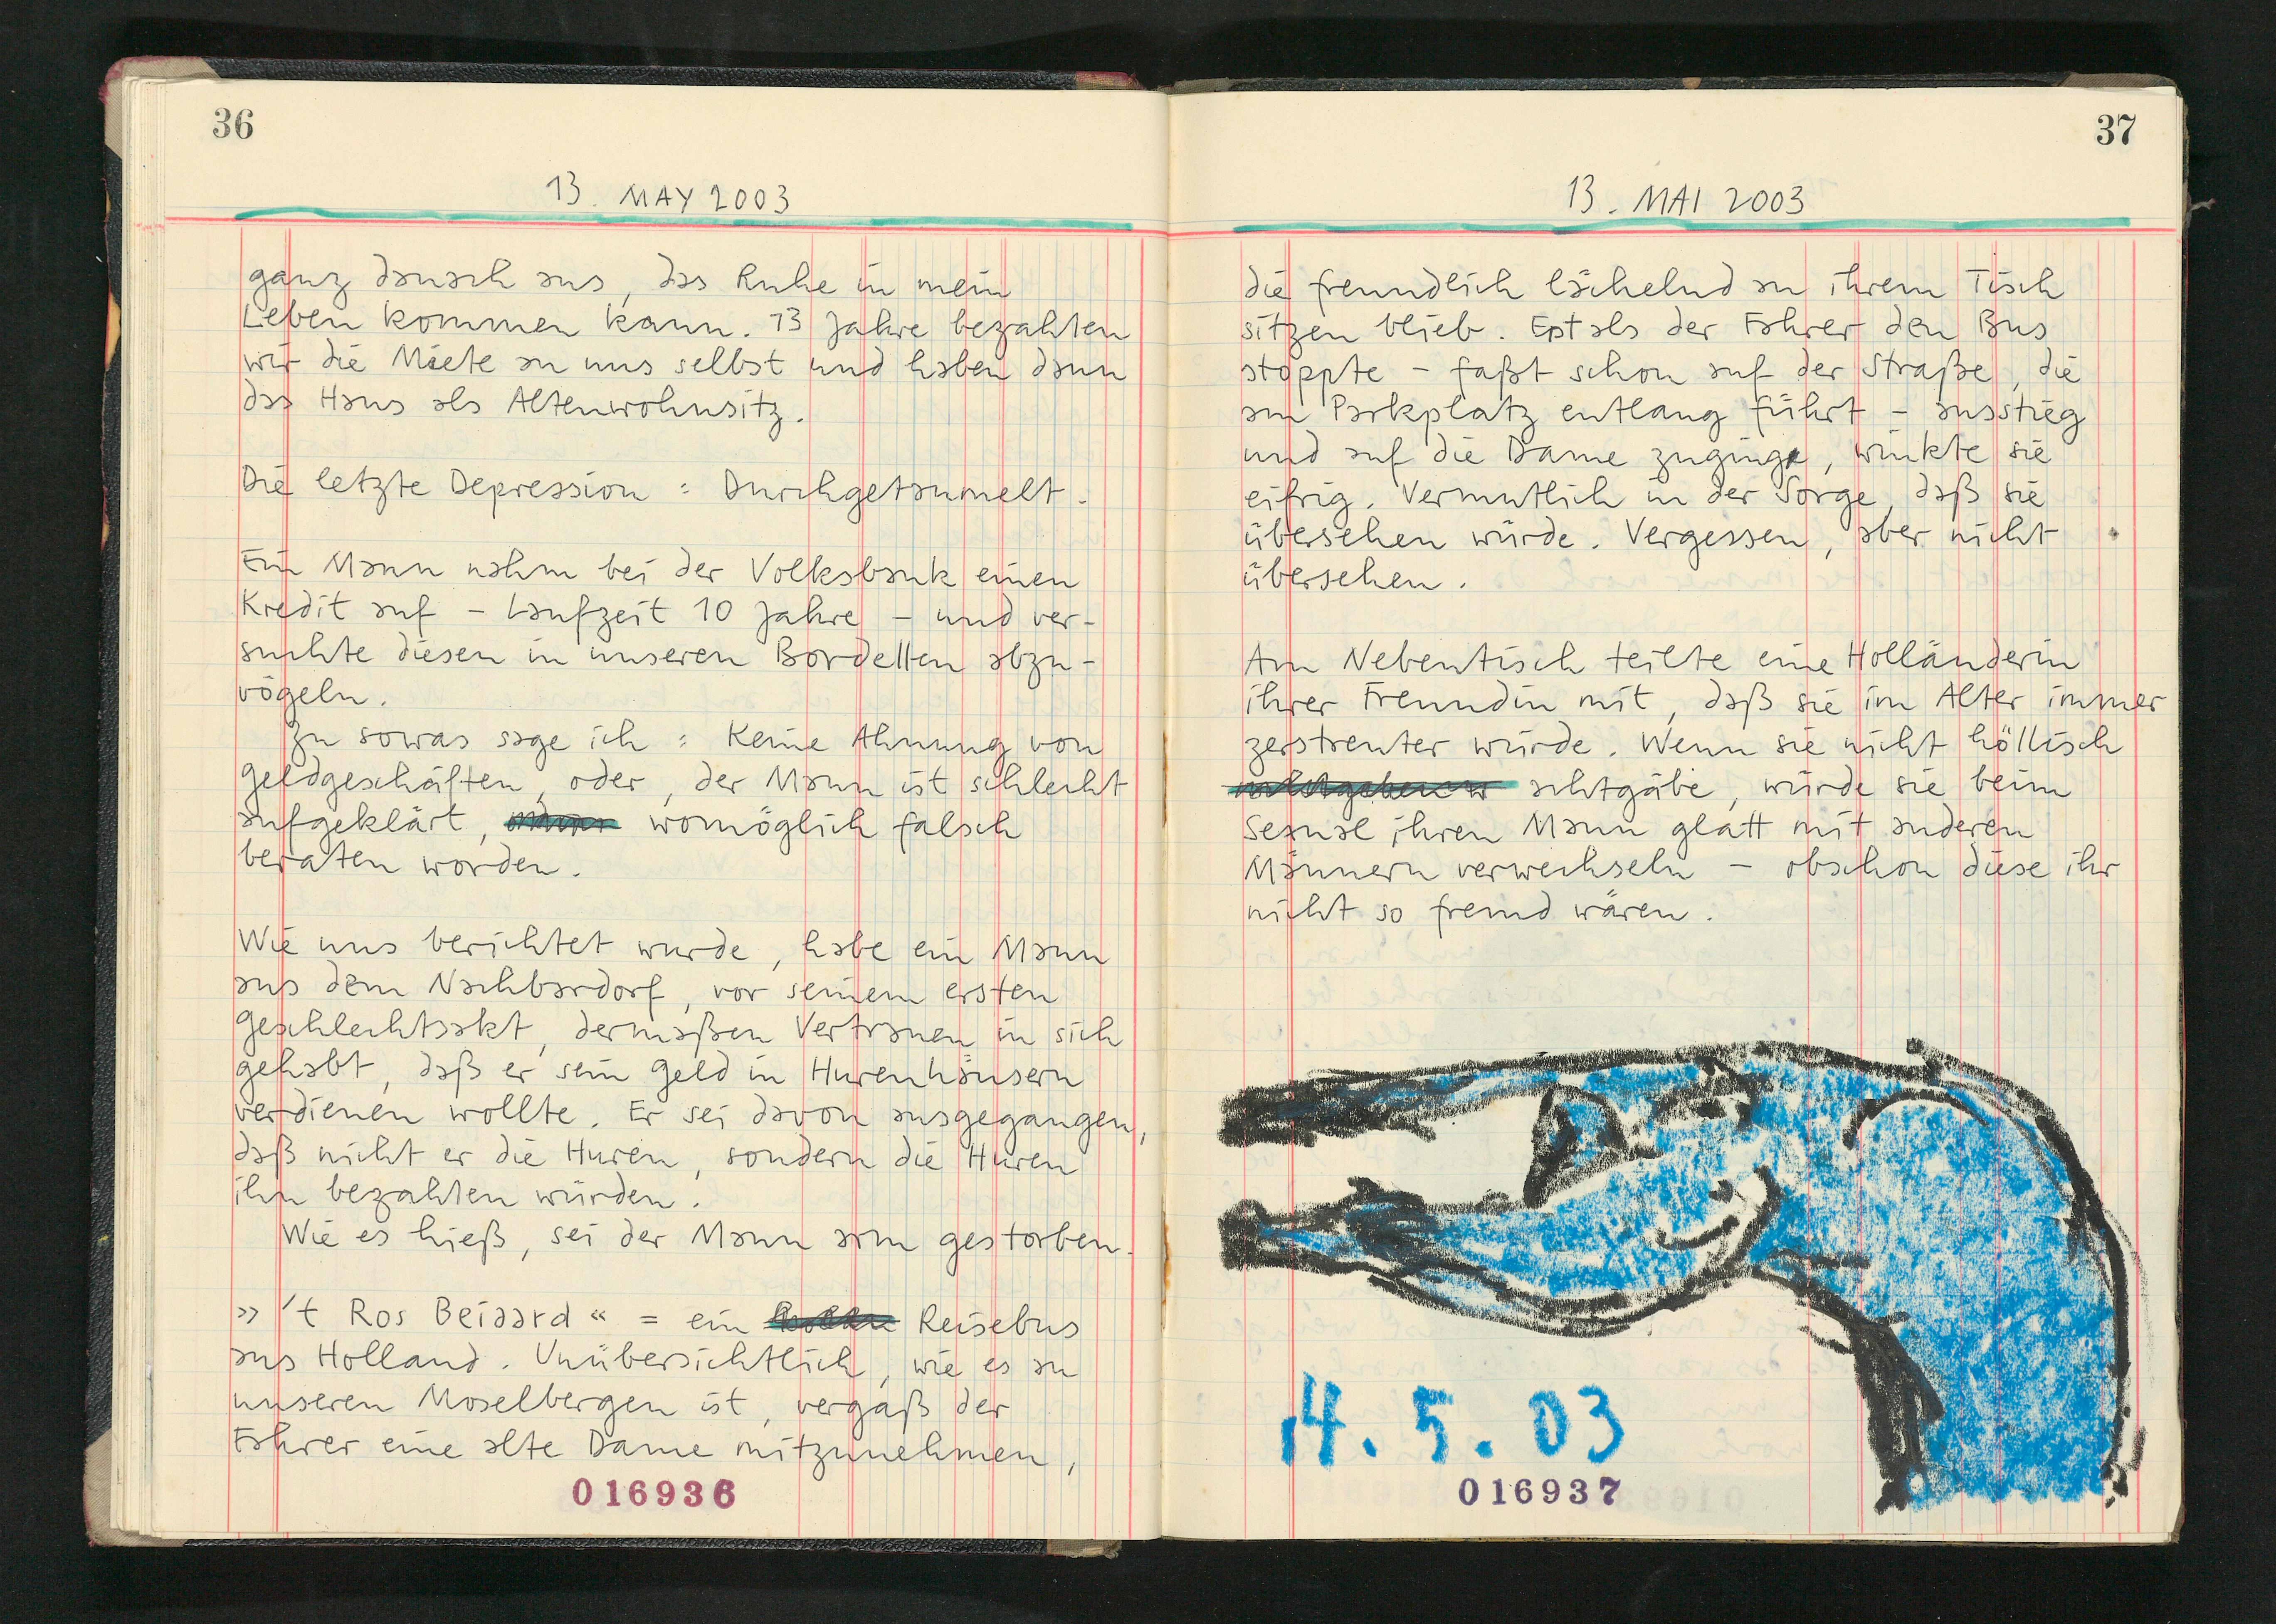 36
13. MAY 2003
ganz danach aus, das Ruhe in mein
Leben kommen kann. 13 Jahre bezahlen
wir die Miete an uns selbst und haben dann
das Haus als Altenwohnsitz.
Die letzte Depression : Durchgetaumelt.
Ein Mann nahm bei der Volksbank einen
Kredit auf – Laufzeit 10 Jahre – und ver-
suchte diesen in unseren Bordellen abzu-
vögeln.
Zu sowas sage ich : Keine Ahnung von
Geldgeschäften, oder, der Mann ist schlecht
aufgeklärt, womöglich falsch
beraten worden.
Wie uns berichtet wurde, habe ein Mann
aus dem Nachbardorf, vor seinem ersten
Geschlechtsakt, dermaßen Vertrauen in sich
gehabt, daß er sein Geld in Hurenhäusern
verdienen wollte. Er sei davon ausgegangen,
daß nicht er die Huren, sondern die Huren
ihn bezahlen würden.
Wie es hieß, sei der Mann arm gestorben.
» 't Ros Beiaard « = ein Reisebus
aus Holland. Unübersichtlich, wie es an
unseren Moselbergen ist, vergaß der
Fahrer eine alte Dame mitzunehmen,
016936
37
13. MAI 2003
die freundlich lächelnd an ihrem Tisch
sitzen blieb. Erst als der Fahrer den Bus
stoppte – faßt schon auf der Straße, die
am Parkplatz entlang führt – ausstieg
und auf die Dame zuging, winkte sie
eifrig. Vermutlich in der Sorge, daß sie
übersehen würde. Vergessen, aber nicht
übersehen.
Am Nebentisch teilte eine Holländerin
ihrer Freundin mit, daß sie im Alter immer
zerstreuter würde. Wenn sie nicht höllisch
achtgäbe, würde sie beim
Sexual ihren Mann glatt mit anderen
Männern verwechseln – obschon diese ihr
nicht so fremd wären.
14.5.03
016937